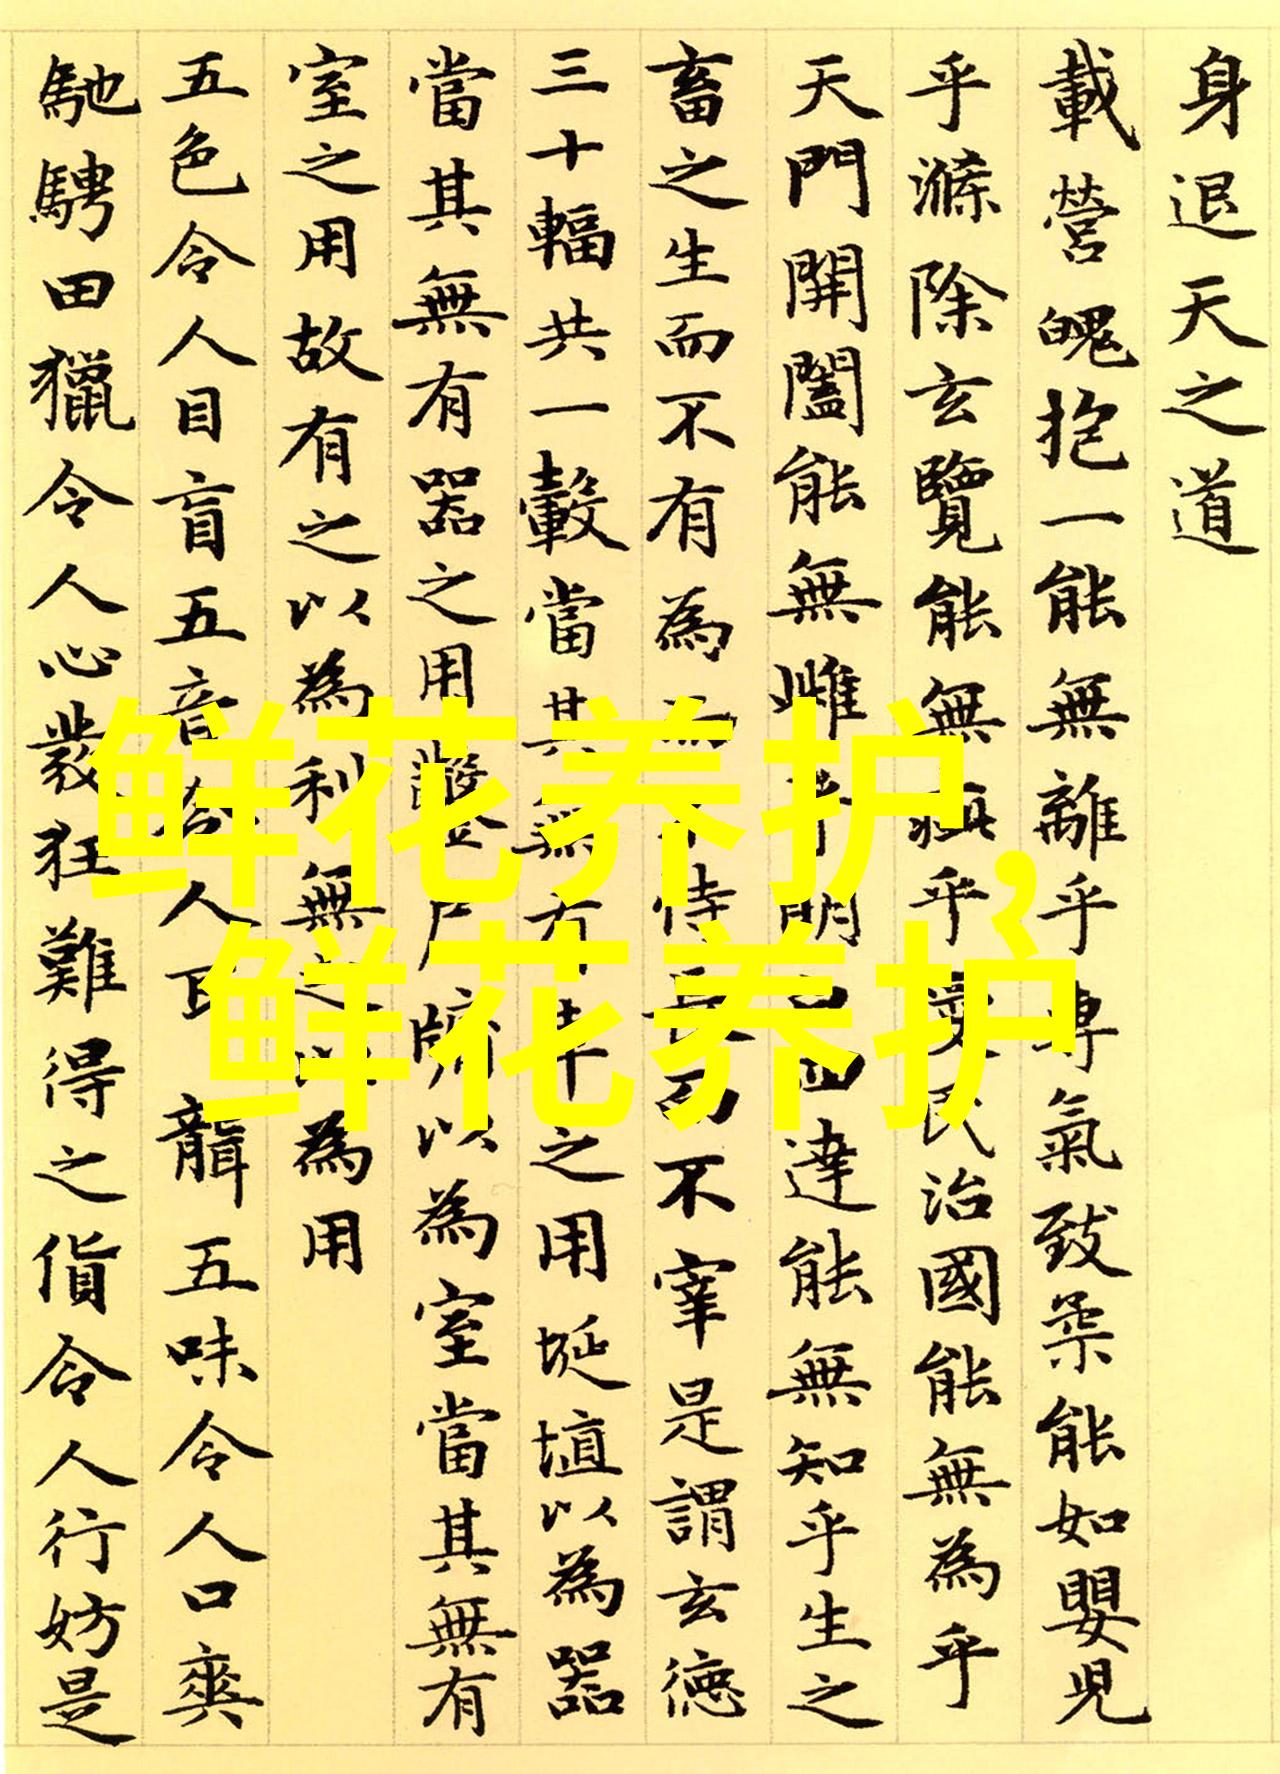 身退天之道
載營魄抱一能無離乎專氣致柔能如嬰兒
乎滌除玄覽能無疵乎愛民治國能無為乎
天門開闔能無雌乎明白四達能無知乎生之
畜之生而不有為而不恃長而不宰是謂玄德
三十輻共一轂當其無有車之用埏埴以為器
當其無有器之用鑿戶牖以為室當其無有
室之用故有之以為利無之以為用
五色令人目盲五音令人耳聾五味令人口爽
馳騁田獵令人心發狂難得之貨令人行妨是
鲜花养护，
鲜花养护